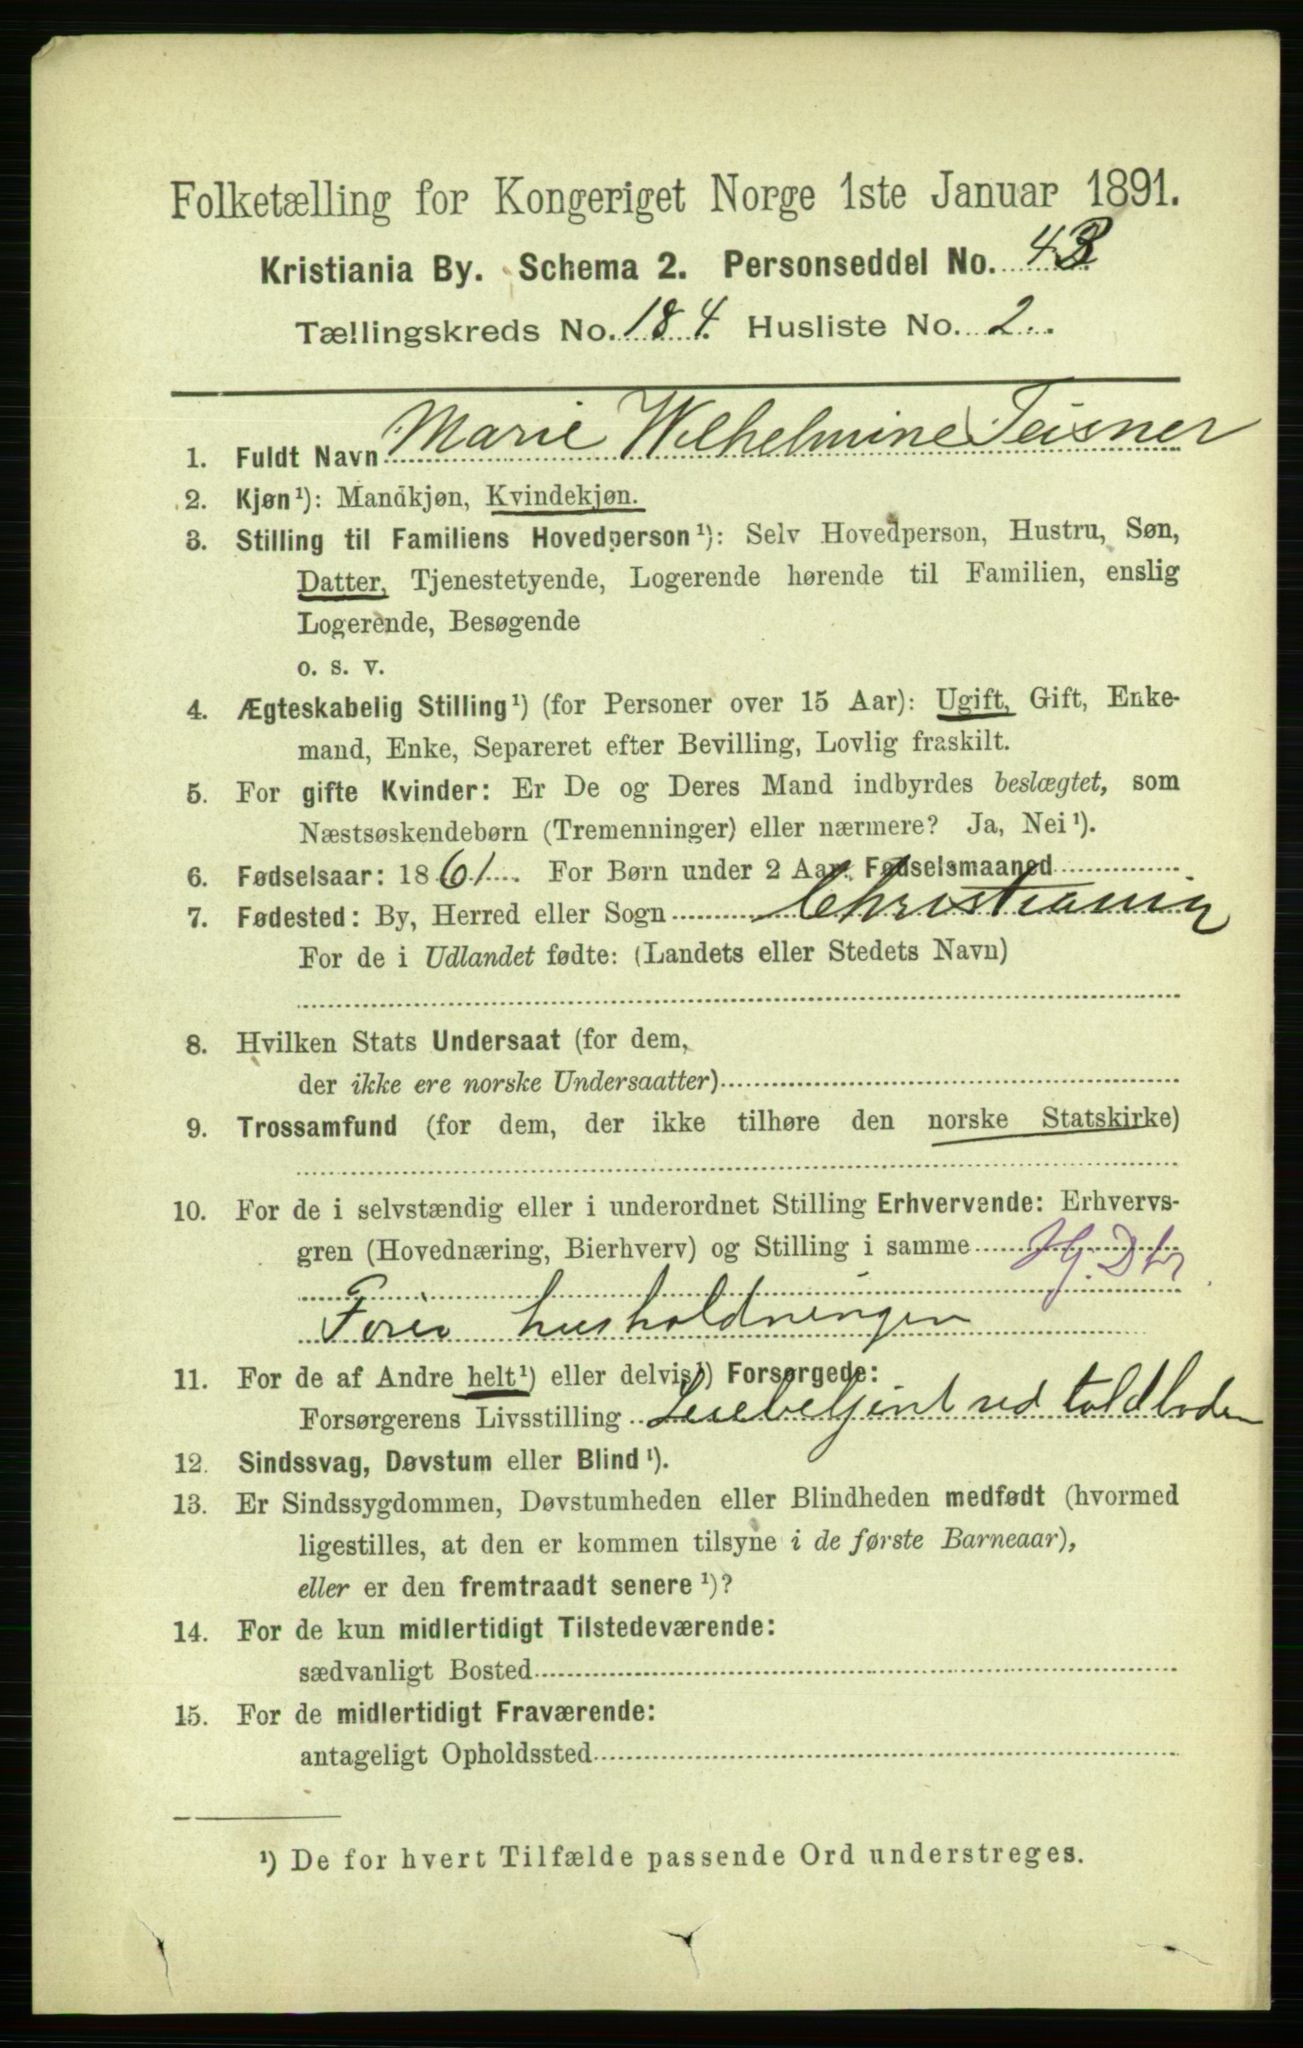 Folketælling for Kongeriget Norge 1ste Januar 1891.
Kristiania By. Schema 2. Personseddel No. 43
Tællingskreds No. 184. Husliste No. 2
1. Fuldt Navn Marie Wilhelmine Teisner
2. Kjøn¹): Mandkjøn, Kvindekjøn.
3. Stilling til Familiens Hovedperson¹): Selv Hovedperson, Hustru, Søn,
Datter, Tjenestetyende, Logerende hørende til Familien, enslig
Logerende, Besøgende
o. s. v.
4. Ægteskabelig Stilling¹) (for Personer over 15 Aar): Ugift, Gift, Enke-
mand, Enke, Separeret efter Bevilling, Lovlig fraskilt.
5. For gifte Kvinder: Er De og Deres Mand indbyrdes beslægtet, som
Næstsøskendebørn (Tremenninger) eller nærmere? Ja, Nei¹).
6. Fødselsaar: 1861. For Børn under 2 Aar: Fødselsmaaned
7. Fødested: By, Herred eller Sogn Christiania
For de i Udlandet fødte: (Landets eller Stedets Navn)
8. Hvilken Stats Undersaat (for dem,
der ikke ere norske Undersaatter)
9. Trossamfund (for dem, der ikke tilhøre den norske Statskirke)
10. For de i selvstændig eller i underordnet Stilling Erhvervende: Erhvervs-
gren (Hovednæring, Bierhverv) og Stilling i samme Hj. Dtr
Forer husholdningen
11. For de af Andre helt¹) eller delvis¹) Forsørgede:
Forsørgerens Livsstilling ved toldboden
12. Sindssvag, Døvstum eller Blind¹).
13. Er Sindssygdommen, Døvstumheden eller Blindheden medfødt (hvormed
ligestilles, at den er kommen tilsyne i de første Barneaar),
eller er den fremtraadt senere¹)?
14. For de kun midlertidigt Tilstedeværende:
sædvanligt Bosted
15. For de midlertidigt Fraværende:
antageligt Opholdssted
¹) De for hvert Tilfælde passende Ord understreges.